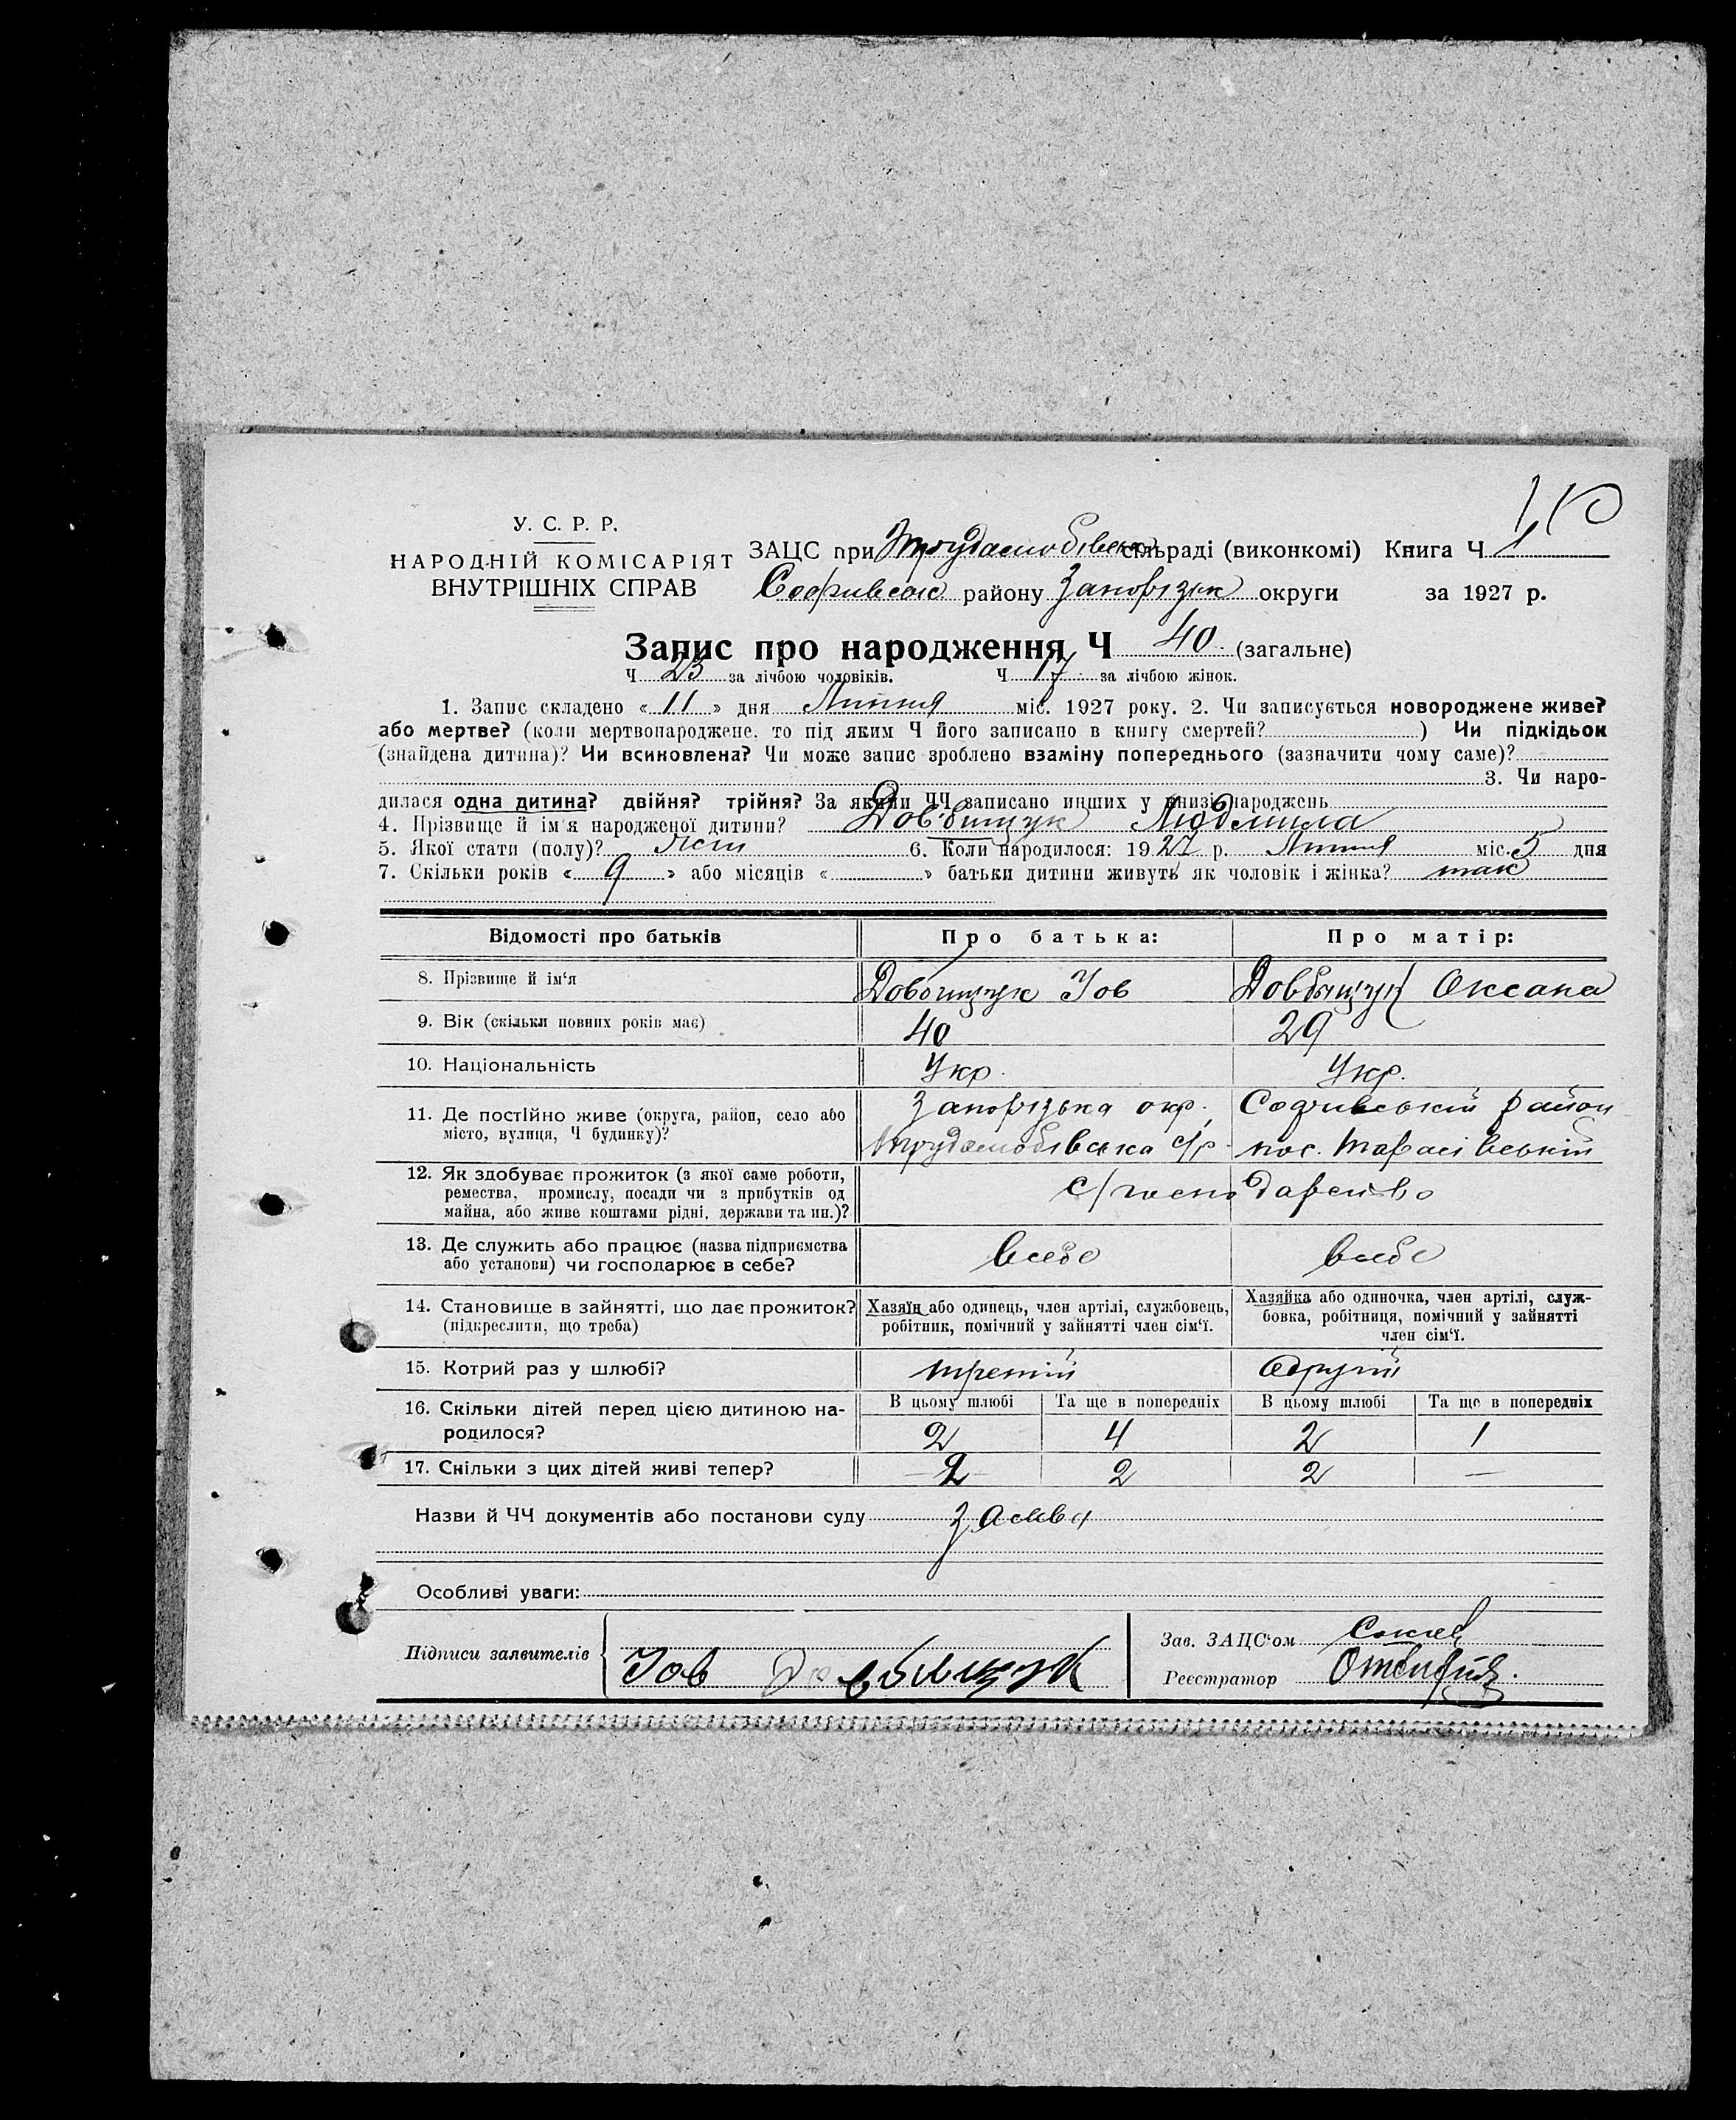 У. С. Р. Р.
НАРОДНІЙ КОМІСАРІЯТ
ВНУТРІШНІХ СПРАВ
ЗАЦС при сільраді (виконкомі) Книга Ч 1
Софивськ району Запорізьк округи за 1927 р.
Запис про народження Ч 40 (загальне)
Ч 23 за лічбою чоловіків. Ч 17 за лічбою жінок.
1. Запис складено « 11 » дня Липня міс. 1927 року. 2. Чи записується новороджене живе?
або мертве? (коли мертвонароджене, то під яким Ч його записано в книгу смертей? ) Чи підкідьок
(знайдена дитина)? Чи всиновлена? Чи може запис зроблено взаміну попереднього (зазначити чому саме)?
3. Чи наро-
дилася одна дитина? двійня? трійня? За якими ЧЧ записано инших у книзі народжень
4. Прізвище й ім'я народженої дитини? Довбищук Людмила
5. Якої стати (полу)? 6. Коли народилося: 1927 р. Липня міс. 5 дня
7. Скільки років « 9 » або місяців « » батьки дитини живуть як чоловік і жінка? так
Відомості про батьків Про батька: Про матір:
8. Прізвище й ім'я Довбищук Іов Довбищук Оксана
9. Вік (скільки повних років має) 40 29
10. Національність Укр. Укр.
11. Де постійно живе (округа, район, село або
місто, вулиця, Ч будинку)?
Запорізька окр. Софивський район
с/р пос. Тарасівський
12. Як здобуває прожиток (з якої саме роботи,
ремества, промислу, посади чи з прибутків од
майна, або живе коштами рідні, держави та ин.)?
с/господарство
13. Де служить або працює (назва підприємства
або установи) чи господарює в себе?
всебе всебе
14. Становище в зайнятті, що дає прожиток?
(підкреслити, що треба)
Хазяїн або одинець, член артілі, службовець,
робітник, помічний у зайнятті член сім'ї.
Хазяйка або одиночка, член артілі, служ-
бовка, робітниця, помічний у зайнятті
член сім'ї.
15. Котрий раз у шлюбі? третій другий
16. Скільки дітей перед цією дитиною на-
родилося?
В цьому шлюбі Та ще в попередніх В цьому шлюбі Та ще в попередніх
2 4 2 1
17. Скільки з цих дітей живі тепер? 2 2 2 —
Назви й ЧЧ документів або постанови суду заява
Особливі уваги:
Підписи заявителів Іов Довбищук
Зав. ЗАЦС'ом
Реєстратор